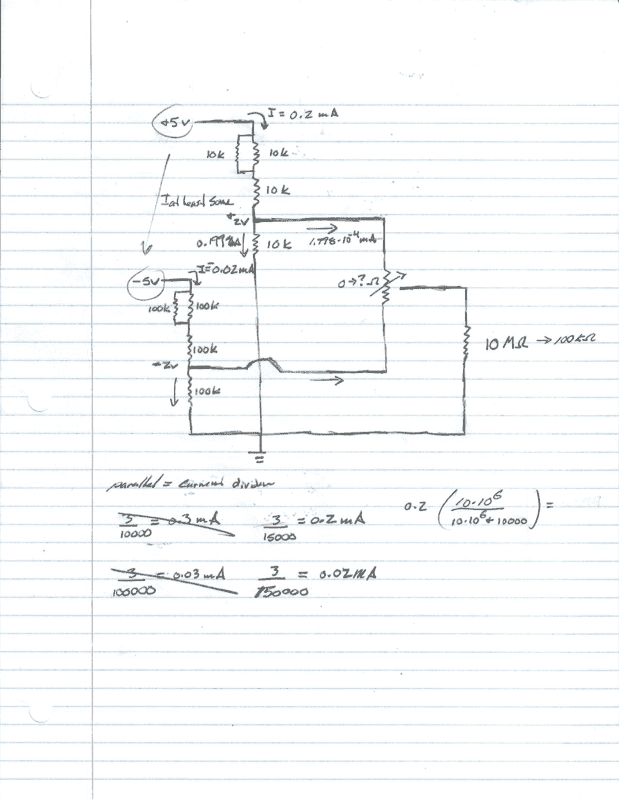 +5v
I = 0.2 mA
10k
10k
10k
I at least Some
+2v
0.1998mA
10k
1.998·10⁻⁴mA
I=0.02mA
-5v
0→?Ω
100k
100k
100k
10 MΩ → 100kΩ
-2v
100k
parallel = current divider
0.2 (10·10⁶ / 10·10⁶+10000) =
3/10000 = 0.3 mA
3/15000 = 0.2 mA
3/100000 = 0.03 mA
3/150000 = 0.02 mA